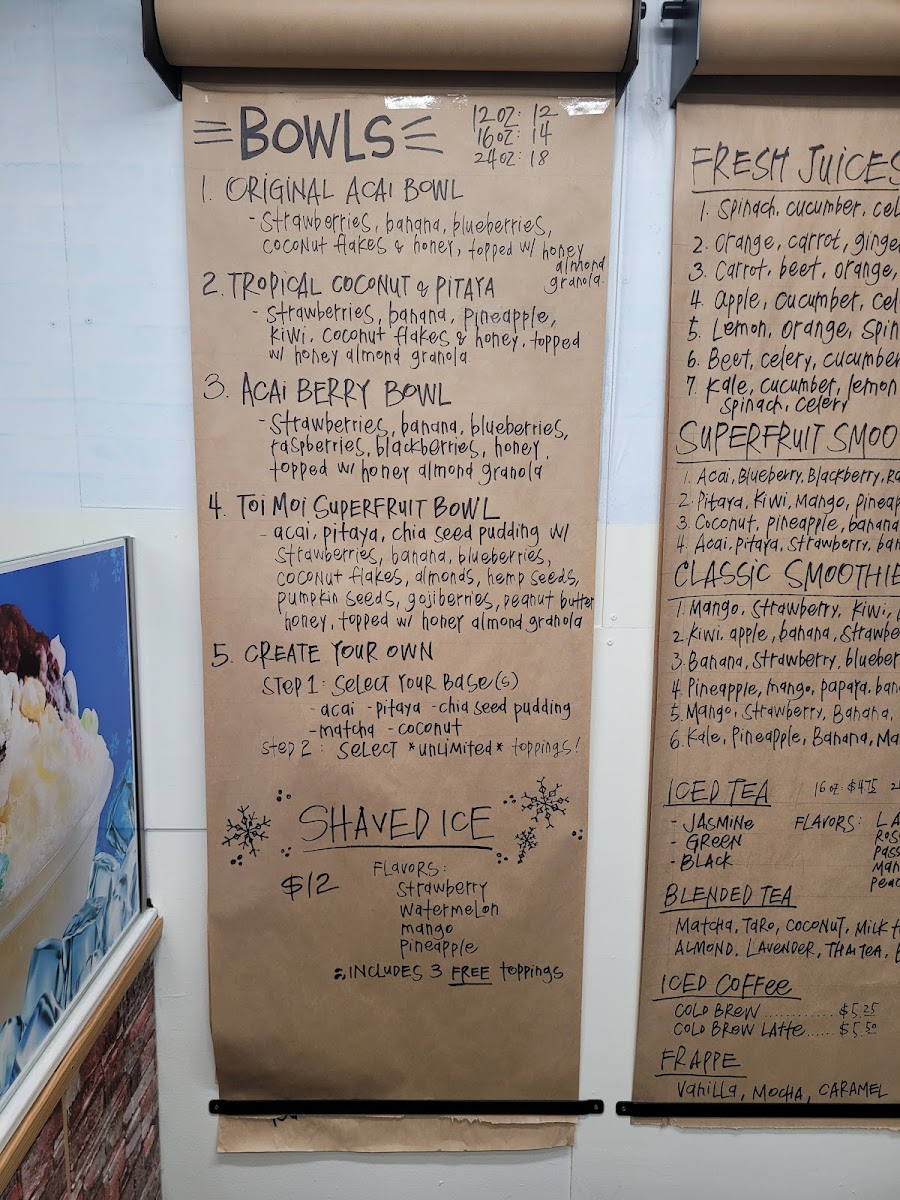 BOWLS
12oz: 12
16oz: 14
24oz: 18
1. ORIGINAL ACAI BOWL
- Strawberries, banana, blueberries,
coconut flakes & honey, topped w/ honey
almond
granola.
2. TROPICAL COCONUT & PITAYA
- strawberries, banana, pineapple,
kiwi, coconut flakes & honey, topped
w/ honey almond granola
3. ACAI BERRY BOWL
- Strawberries, banana, blueberries,
raspberries, blackberries, honey,
topped w/ honey almond granola
4. TOI MOI SUPERFRUIT BOWL
- acai, pitaya, chia seed pudding w/
strawberries, banana, blueberries,
coconut flakes, almonds, hemp seeds,
pumpkin seeds, gojiberries, peanut butter
honey, topped w/ honey almond granola
5. CREATE YOUR OWN
STEP 1: SELECT YOUR BASE(S)
- acai - pitaya - chia seed pudding
- matcha - coconut
Step 2: SELECT *UNLIMITED* toppings!
SHAVED ICE
$12
FLAVORS:
Strawberry
Watermelon
mango
Pineapple
INCLUDES 3 FREE toppings
FRESH JUICES
1. Spinach, cucumber, cel
2. Orange, carrot, ginge
3. Carrot, beet, orange,
4. Apple, cucumber, cel
5. Lemon, orange, spin
6. Beet, celery, cucumber
7. Kale, cucumber, lemon
spinach, celery
SUPERFRUIT SMOO
1. Acai, Blueberry, Blackberry, Ra
2. Pitaya, Kiwi, Mango, Pineap
3. Coconut, pineapple, banana
4. Acai, Pitaya, Strawberry, ban
CLASSIC SMOOTHIE
1. Mango, Strawberry, Kiwi,
2. Kiwi, apple, banana, Strawbe
3. Banana, Strawberry, blueber
4. Pineapple, mango, papaya, ban
5. Mango, Strawberry, Banana,
6. Kale, Pineapple, Banana, Ma
ICED TEA 16 oz: $4.75 2
- JASMINE
- GREEN
- BLACK
FLAVORS: LA
ROS
PASS
MAN
PEAC
BLENDED TEA
Matcha, Taro, Coconut, Milk t
ALMOND, LAVENDER, THAI TEA,
ICED COFFEE
COLD BREW............ $5.25
COLD BREW LATTE..... $5.50
FRAPPE
Vanilla, MOCHA, CARAMEL